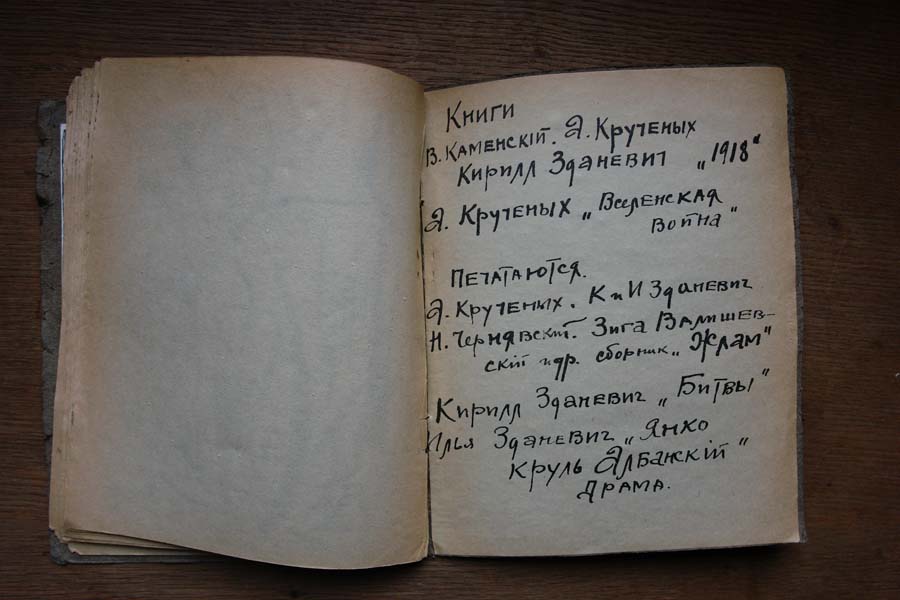 Книги
В. Каменскій. А. Крученых
Кирилл Зданевич „1918“
А. Крученых „Вселенская
война“
Печатаются.
А. Крученых. К и И Зданевич
Н. Чернявскій. Зига Валишев-
скій и др. сборник „Жлам“
Кирилл Зданевич „Битвы“
Илья Зданевич „Янко
круль Албанскій“
драма.